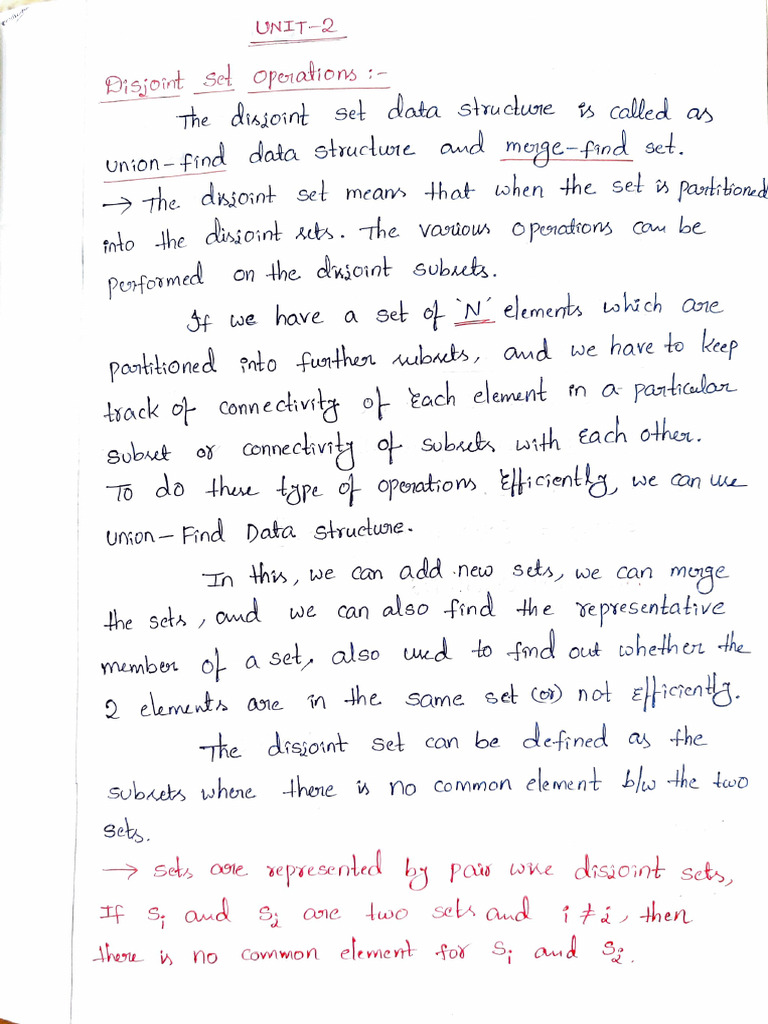 UNIT-2
Disjoint Set Operations :-
The disjoint set data structure is called as
union-find data structure and merge-find set.
→ The disjoint set means that when the set is partitioned
into the disjoint sets. The various operations can be
performed on the disjoint subsets.
If we have a set of 'N' elements which are
partitioned into further subsets, and we have to keep
track of connectivity of Each element in a particular
subset or connectivity of subsets with Each other.
To do these type of operations Efficiently, we can use
Union-Find Data Structure.
In this, we can add new sets, we can merge
the sets, and we can also find the representative
member of a set, also used to find out whether the
2 elements are in the same set (or) not Efficiently.
The disjoint set can be defined as the
subsets where there is no common element b/w the two
sets.
→ sets are represented by pair wise disjoint sets,
If Si and Sj are two sets and i ≠ j, then
there is no common element for Si and Sj.